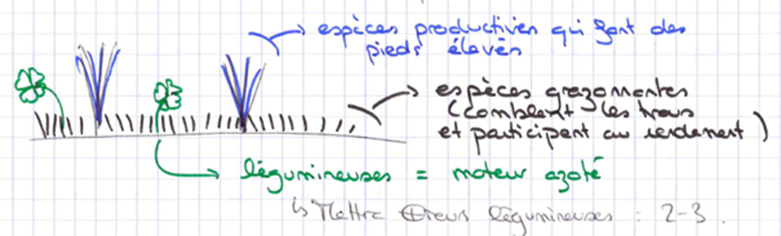 espèces productives qui font des
pieds élevés
espèces gazonnantes
(comblent les trous
et participent au rendement)
légumineuses = moteur azoté
↳ Mettre ⊕ieurs légumineuses : 2-3.